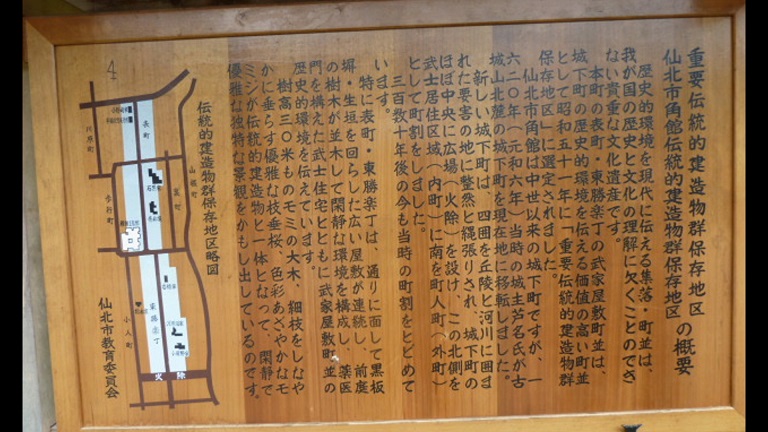 重要伝統的建造物群保存地区
仙北市角館伝統的建造物群保存地区
の概要
歴史的環境を現代に伝える集落・町並は、
我が国の歴史と文化の理解に欠くことのでき
ない貴重な文化遺産です。
本町の表町・東勝楽丁の武家屋敷町並は、
城下町の歴史的環境を伝える価値の高い町並
として昭和五十一年に「重要伝統的建造物群
保存地区」に選定されました。
仙北市角館は中世以来の城下町ですが、一
六二〇年(元和六年)当時の城主芦名氏が古
城山北麓の城下町を現在地に移転しました。
新しい城下町は、四囲を丘陵と河川に囲ま
れた要害の地に整然と縄張りされ、城下町の
ほぼ中央に広場(火除)を設け、この北側を
武士居住区域(内町)に南を町人町(外町)
として町割をしました。
三百数十年後の今も当時の町割をとどめて
います。
特に表町・東勝楽丁は、通りに面して黒板
塀・生垣を回らした広い屋敷が連続し、前庭
の樹木が並木して閑静な環境を構成し、薬医
門を構えた武士住宅とともに武家屋敷町並の
歴史的環境を伝えています。
樹高三〇米ものモミの大木、細枝をしなや
かに垂らす優雅な枝垂桜、色彩あざやかなモ
ミジが伝統的建造物と一体となって、閑静で
優雅な独特な景観をかもし出しているのです。
伝統的建造物群保存地区略図
仙北市教育委員会
表町
川原町
山根町
裏町
歩行町
東勝楽丁
小人町
火除